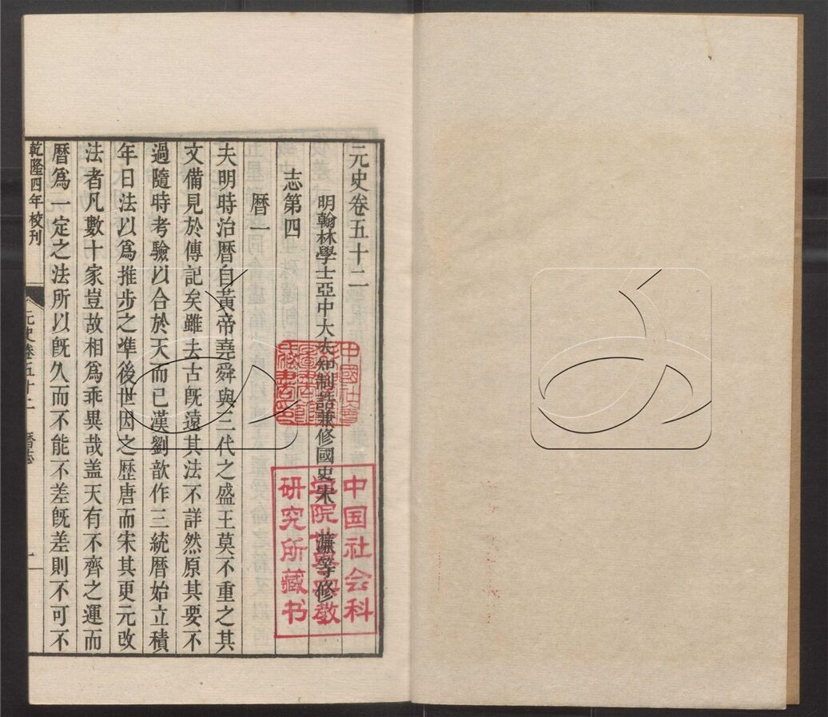 元史卷五十二
明翰林學士亞中大夫知制誥兼修國史宋濂等修
志第四
曆一
夫明時治曆自黃帝堯舜與三代之盛王莫不重之其
文備見於傳記矣雖去古旣遠其法不詳然原其要不
過隨時考驗以合於天而已漢劉歆作三統曆始立積
年日法以爲推步之準後世因之歷唐而宋其更元改
法者凡數十家豈故相爲乖異哉葢天有不齊之運而
曆爲一定之法所以旣久而不能不差旣差則不可不
乾隆四年校刊
元史卷五十二
曆志
一
中國社會
中国社会科
学院世界宗教
研究所藏书